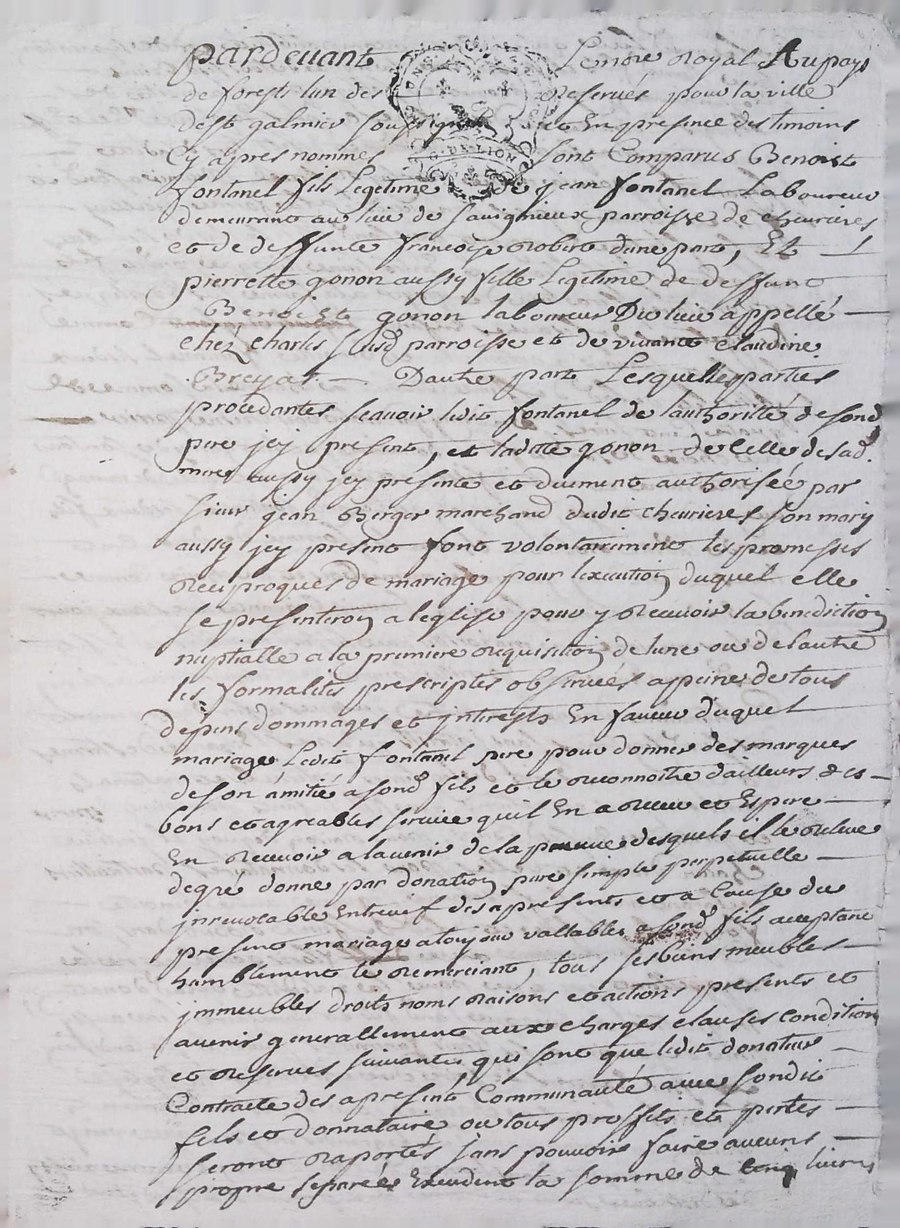 pardevant Le nore Royal Au pays
de forests lun des reservés pour la ville
de st galmier soussigné et En presence des timoins
Cy apres nommés sont Comparus Benoist
fontanel fils Legetime de jean fontanel Laboureur
demeurant au lieu de savignieux parroisse de chevrieres
et de deffunte francoise Robert dune part, Et
pierrette gonon aussy fille Legetime de deffunt
Benoist gonon laboureur Du lieu appellé
chez charles susd parroisse et de vivante claudine
Breyat Dautre part Lesquelles parties
procedantes scavoir ledit fontanel de lauthorité de sond
pere jcy present, et ladite gonon de Celle de sad
mere aussy jcy presente et duement authorisée par
sieur jean Berger marchand dudit chevrieres son mary
aussy jcy present font volontairement les promesses
reciproques de mariage pour lexecution duquel elle
se presenteron a leglise pour y recevoir la benediction
nuptialle a la premiere requisition de lune ou de lautre
les formalités prescriptes observées a peine de tous
dépens dommages et jnterests En faveur duquel
mariage Ledit fontanel pere pour donner des marques
de son amitié a sond fils et le reconnoitre dailleurs des
bons et agreables service quil En a receu et Espere
En recevoir a lavenir de la preuve desquels il le releve
de gré donne par donation pure simple perpetuelle
jrrevocable Entrevif des apresents et a Cause du
present mariage a toujour vallable a sond fils acceptant
humblement le remerciant, tous ses biens meubles
jmmeubles droits noms raisons et actions presents et
avenir generallement aux charges clauses condition
et reserves suivantes, qui sont que ledit donateur
Contracte des apresent Communauté avec sondit
fils et donnataire ou tous proffits et pertes
seront raportés sans pouvoir faire aucuns
propre separée Excedent la somme de Cinq livres
G. DE LION